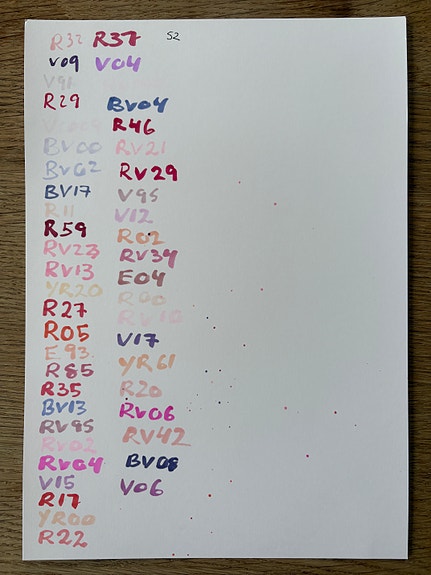 R32 R37 S2
V09 V04
R29 BV04
R46
BV00 RV21
BV02 RV29
BV17 V95
R11 V12
R59 R02
RV23 RV34
RV13 E04
YR20 R00
R27 RV10
R05 V17
E93 YR61
R85 R20
R35 RV06
BV13
RV95 RV42
RV02
RV04 BV08
V15 V06
R17
YR00
R22